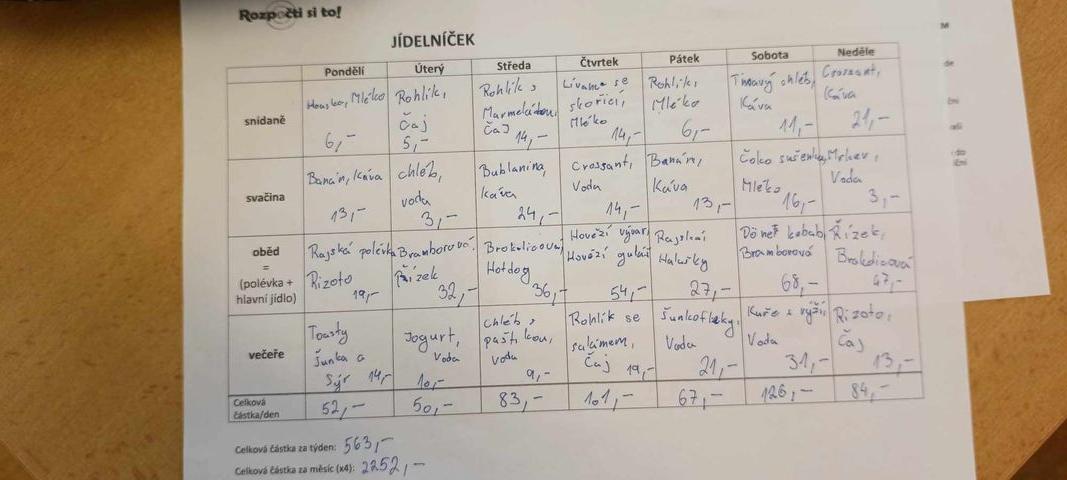 Rozpočti si to!
JÍDELNÍČEK
Pondělí Úterý Středa Čtvrtek Pátek Sobota Neděle
snídaně
Houska, Mléko
6,-
Rohlík,
Čaj
5,-
Rohlík s
Marmeládou,
Čaj
14,-
Lívance se
skořicí,
Mléko
14,-
Rohlík,
Mléko
6,-
Tmavý chléb,
Káva
11,-
Crossant,
Káva
21,-
svačina
Banán, Káva
13,-
chléb,
voda
3,-
Bublanina,
káva
24,-
Crossant,
Voda
14,-
Banán,
Káva
13,-
Čoko sušenka,
Mléko
16,-
Mrkev,
Voda
3,-
oběd
=
(polévka +
hlavní jídlo)
Rajská polévka
Rizoto
19,-
Bramborová,
Řízek
32,-
Brokolicová,
Hotdog
36,-
Hovězí vývar,
Hovězí guláš
54,-
Rajská
Halušky
27,-
Döner kebab,
Bramborová
68,-
Řízek,
Brokolicová
47,-
večeře
Toasty
šunka a
Sýr 14,-
Jogurt,
Voda
10,-
Chléb s
paštikou,
voda
9,-
Rohlík se
salámem,
Čaj 19,-
Šunkofleky,
Voda
21,-
Kuře s rýží,
Voda
31,-
Rizoto,
Čaj
13,-
Celková
částka/den
52,- 50,- 83,- 101,- 67,- 126,- 84,-
Celková částka za týden: 563,-
Celková částka za měsíc (x4): 2252,-